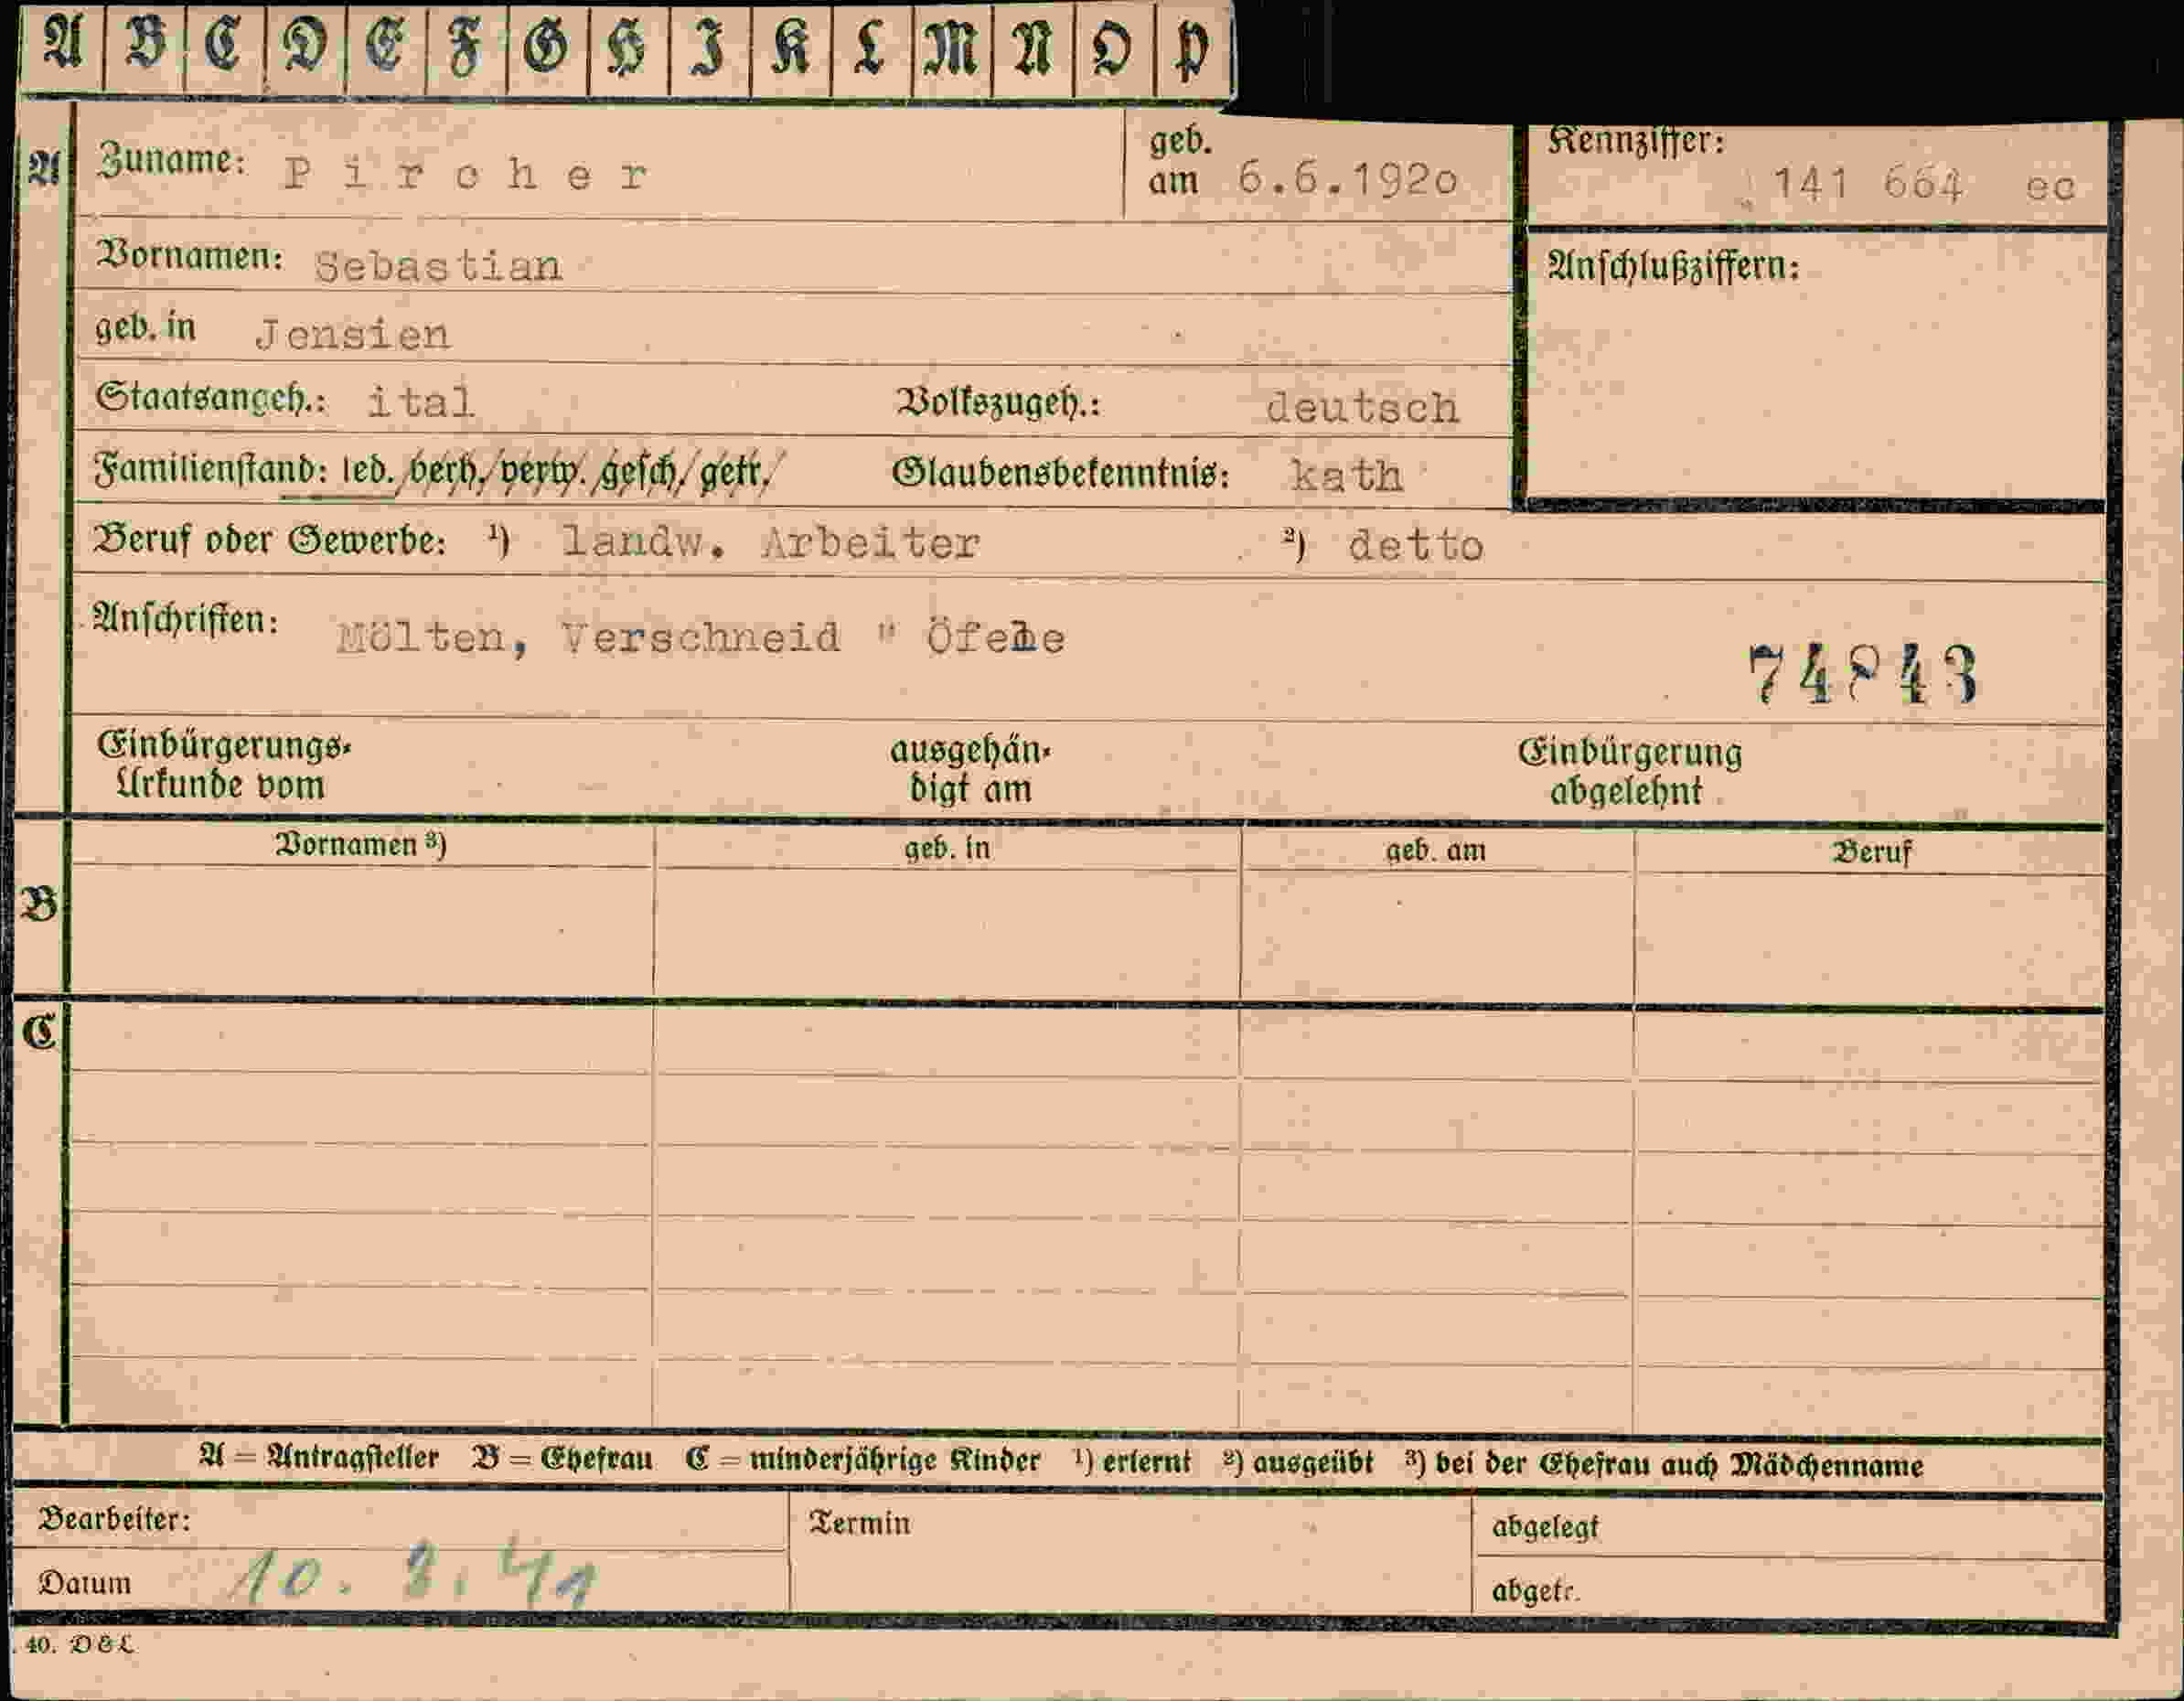 A B C D E F G H I K L M N O P
A Zuname: Pircher geb. am 6.6.1920 Kennziffer: 141 664 ec
Vornamen: Sebastian Anschlußziffern:
geb. in Jensien
Staatsangeh.: ital Volkszugeh.: deutsch
Familienstand: led. verh. verw. gesch. getr. Glaubensbekenntnis: kath
Beruf oder Gewerbe: ¹) landw. Arbeiter ²) detto
Anschriften: Mölten, Verschneid "
74843
Einbürgerungs- Urkunde vom ausgehän- digt am Einbürgerung abgelehnt
Vornamen ³) geb. in geb. am Beruf
B
C
A = Antragsteller B = Ehefrau C = minderjährige Kinder ¹) erlernt ²) ausgeübt ³) bei der Ehefrau auch Mädchenname
Bearbeiter: Termin abgelegt
Datum abgetr.
40. D&L